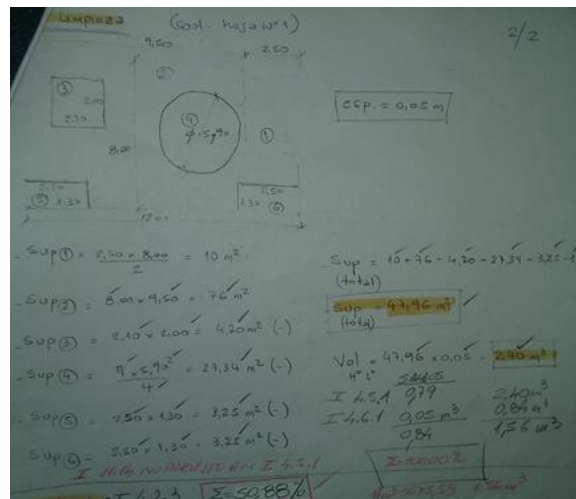 Limpieza (cont. hoja Nº 1) 2/2
9,50 2,50
②
③ 2,00
2,10
④
φ=5,90
①
8,00
esp. = 0,05 m
2,50
⑤ 1,30
2,50
1,30 ⑥
12,00
- Sup ① = 2,50 x 8,00 / 2 = 10 m²
- Sup ② = 8,00 x 9,50 = 76 m²
- Sup ③ = 2,10 x 2,00 = 4,20 m² (-)
- Sup ④ = π x 5,90² / 4 = 27,34 m² (-)
Sup ⑤ = 2,50 x 1,30 = 3,25 m² (-)
Sup ⑥ = 2,50 x 1,30 = 3,25 m² (-)
- Sup = 10 + 76 - 4,20 - 27,34 - 3,25 -
(total)
- Sup = 47,96 m²
(total)
Vol = 47,96 x 0,05 = 2,40 m³
I 4.5.1 0,79 2,40 m³
I 4.6.1 0,05 m³ 0,84 m³
0,84 1,56 m³
EN I 4.5.1
I 4.2.3 Σ=50,88%